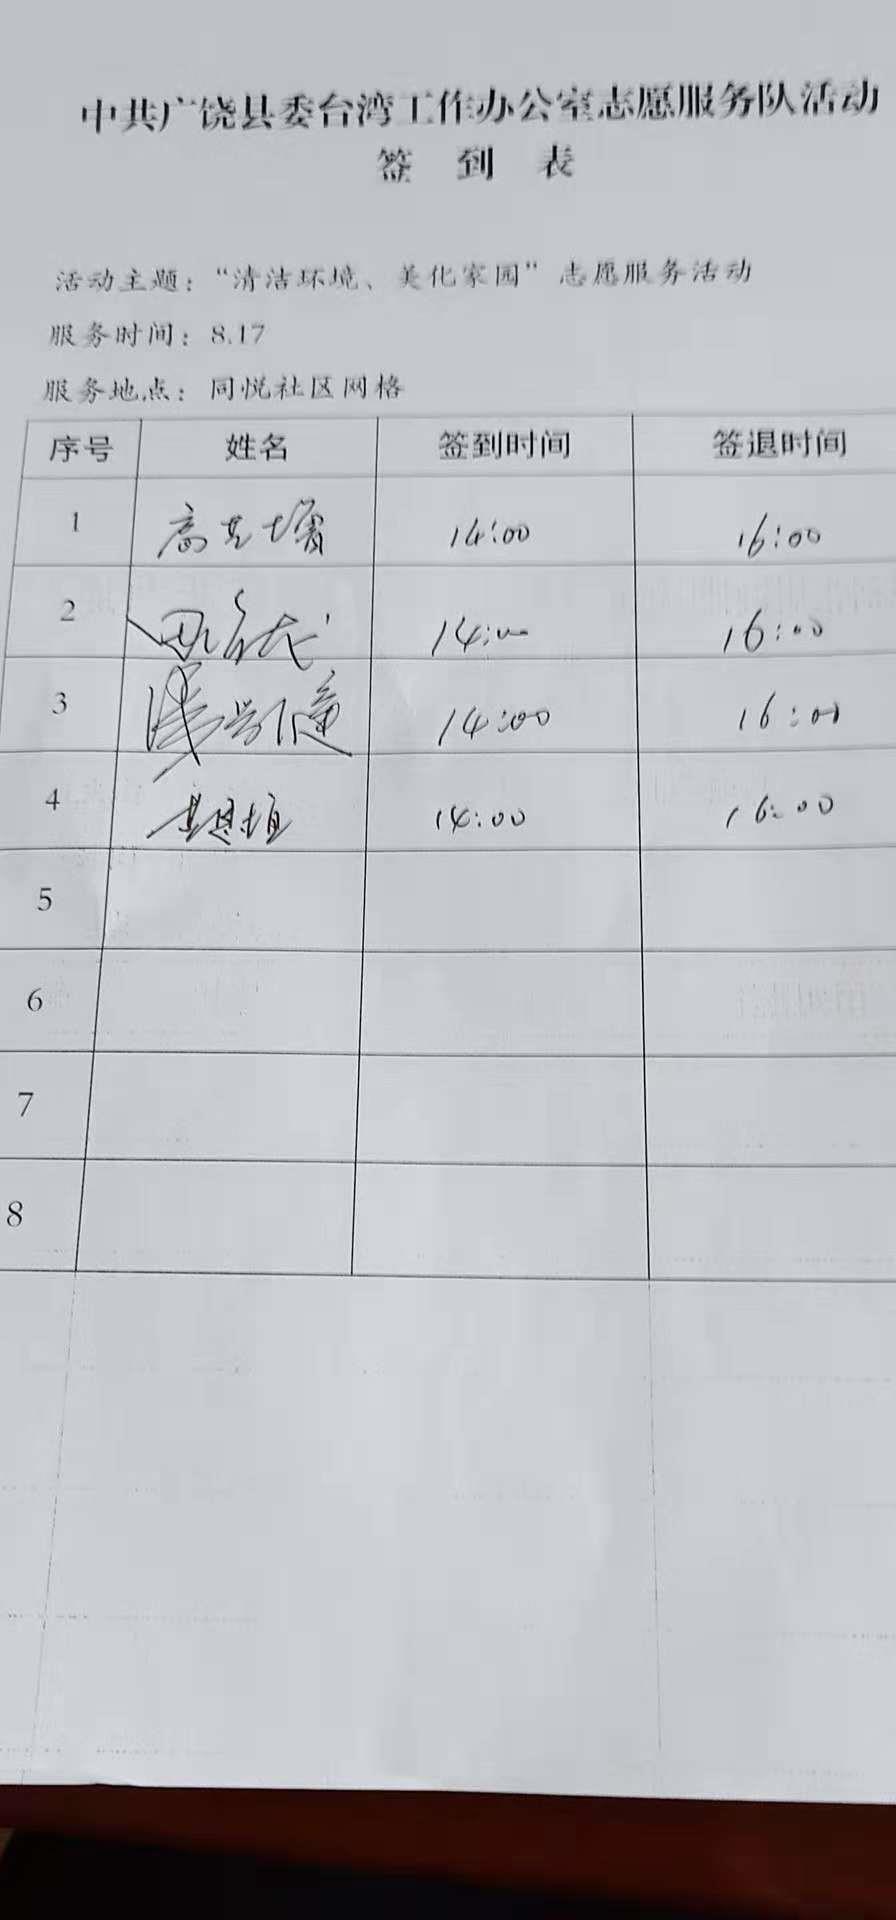 中共广饶县委台湾工作办公室志愿服务队活动
签 到 表
活动主题：“清洁环境、美化家园”志愿服务活动
服务时间：8.17
服务地点：同悦社区网格
序号 姓名 签到时间 签退时间
1 14:00 16:00
2 14:00 16:00
3 14:00 16:00
4 14:00 16:00
5
6
7
8